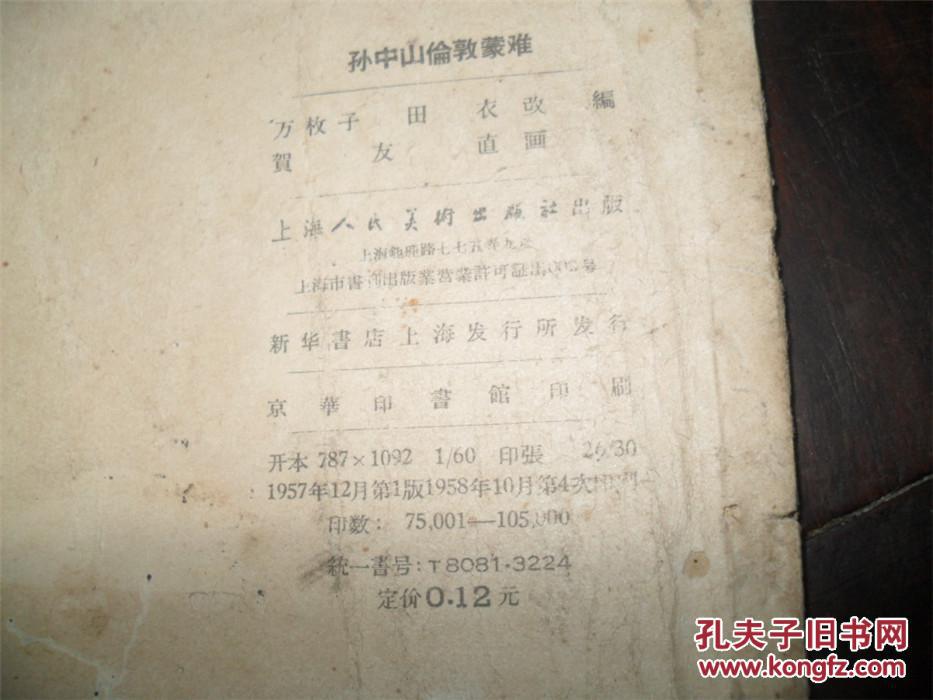 孙中山倫敦蒙难
万枚子 田衣改編
賀友直画
上海人民美術出版社出版
上海
上海市書刊出版業营業許可証出
新华書店上海发行所发行
京華印書館印刷
开本 787×1092 1/60 印張 2 6/30
1957年12月第1版1958年10月第4次印刷
印数: 75,001—105,000
統一書号:T8081·3224
定价0.12元
孔夫子旧书网
www.kongfz.com